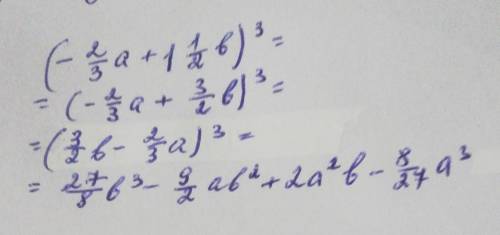 (-2/3 a + 1 1/2 b)³ =
= (-2/3 a + 3/2 b)³ =
= (3/2 b - 2/3 a)³ =
= 27/8 b³ - 9/2 ab² + 2a²b - 8/27 a³